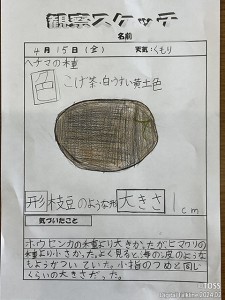 観察スケッチ
名前
4月15日(金) 天気:くもり
ヘチマの種
色 こげ茶・白・うすい黄土色
形 枝豆のような形 大きさ 1cm
気づいたこと
ホウセンカの種より大きかったが、ヒマワリの
種より小さかった。よく見ると海の波のような
もようがついていた。小指のつめと同じ
くらいの大きさだった。
©TOSS